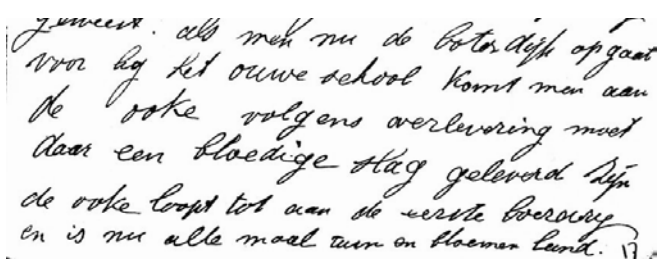 geweest. als men nu de boterdijk op gaat
voor bij het ouwe school komt men aan
de ooke volgens overlevering moet
daar een bloedige slag geleverd zijn
de ooke loopt tot aan de eerste
en is nu alle maal tuin en bloemen land.